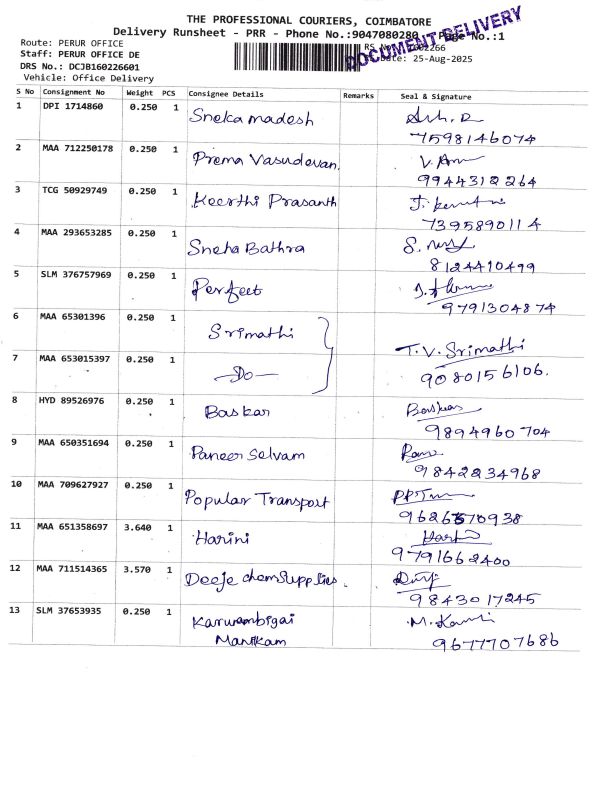 THE PROFESSIONAL COURIERS, COIMBATORE
Delivery Runsheet - PRR - Phone No.:9047080280 Page No.:1
DOCUMENT DELIVERY
Route: PERUR OFFICE
Staff: PERUR OFFICE DE
Date: 25-Aug-2025
DRS No.: DCJB160226601
Vehicle: Office Delivery
S No Consignment No Weight PCS Consignee Details Remarks Seal & Signature
1 DPI 1714860 0.250 1 Sneka madesh
7598146074
2 MAA 712250178 0.250 1 Prema Vasudevan.
9944312264
3 TCG 50929749 0.250 1 Keerthi Prasanth
7395890114
4 MAA 293653285 0.250 1 Sneha Bathra
8124410499
5 SLM 376757969 0.250 1 Perfect
9791304874
6 MAA 65301396 0.250 1 Srimathi
T.V. Srimathi
7 MAA 653015397 0.250 1 -Do-
9080156106.
8 HYD 89526976 0.250 1 Baskar Baskar
9894960704
9 MAA 650351694 0.250 1 Paneer Selvam
9842234968
10 MAA 709627927 0.250 1 Popular Transport
11 MAA 651358697 3.640 1 Harini
9791662400
12 MAA 711514365 3.570 1 Deeje chem Supplies.
9843017245
13 SLM 37653935 0.250 1 Karuvambigai
Manikam
9677707686